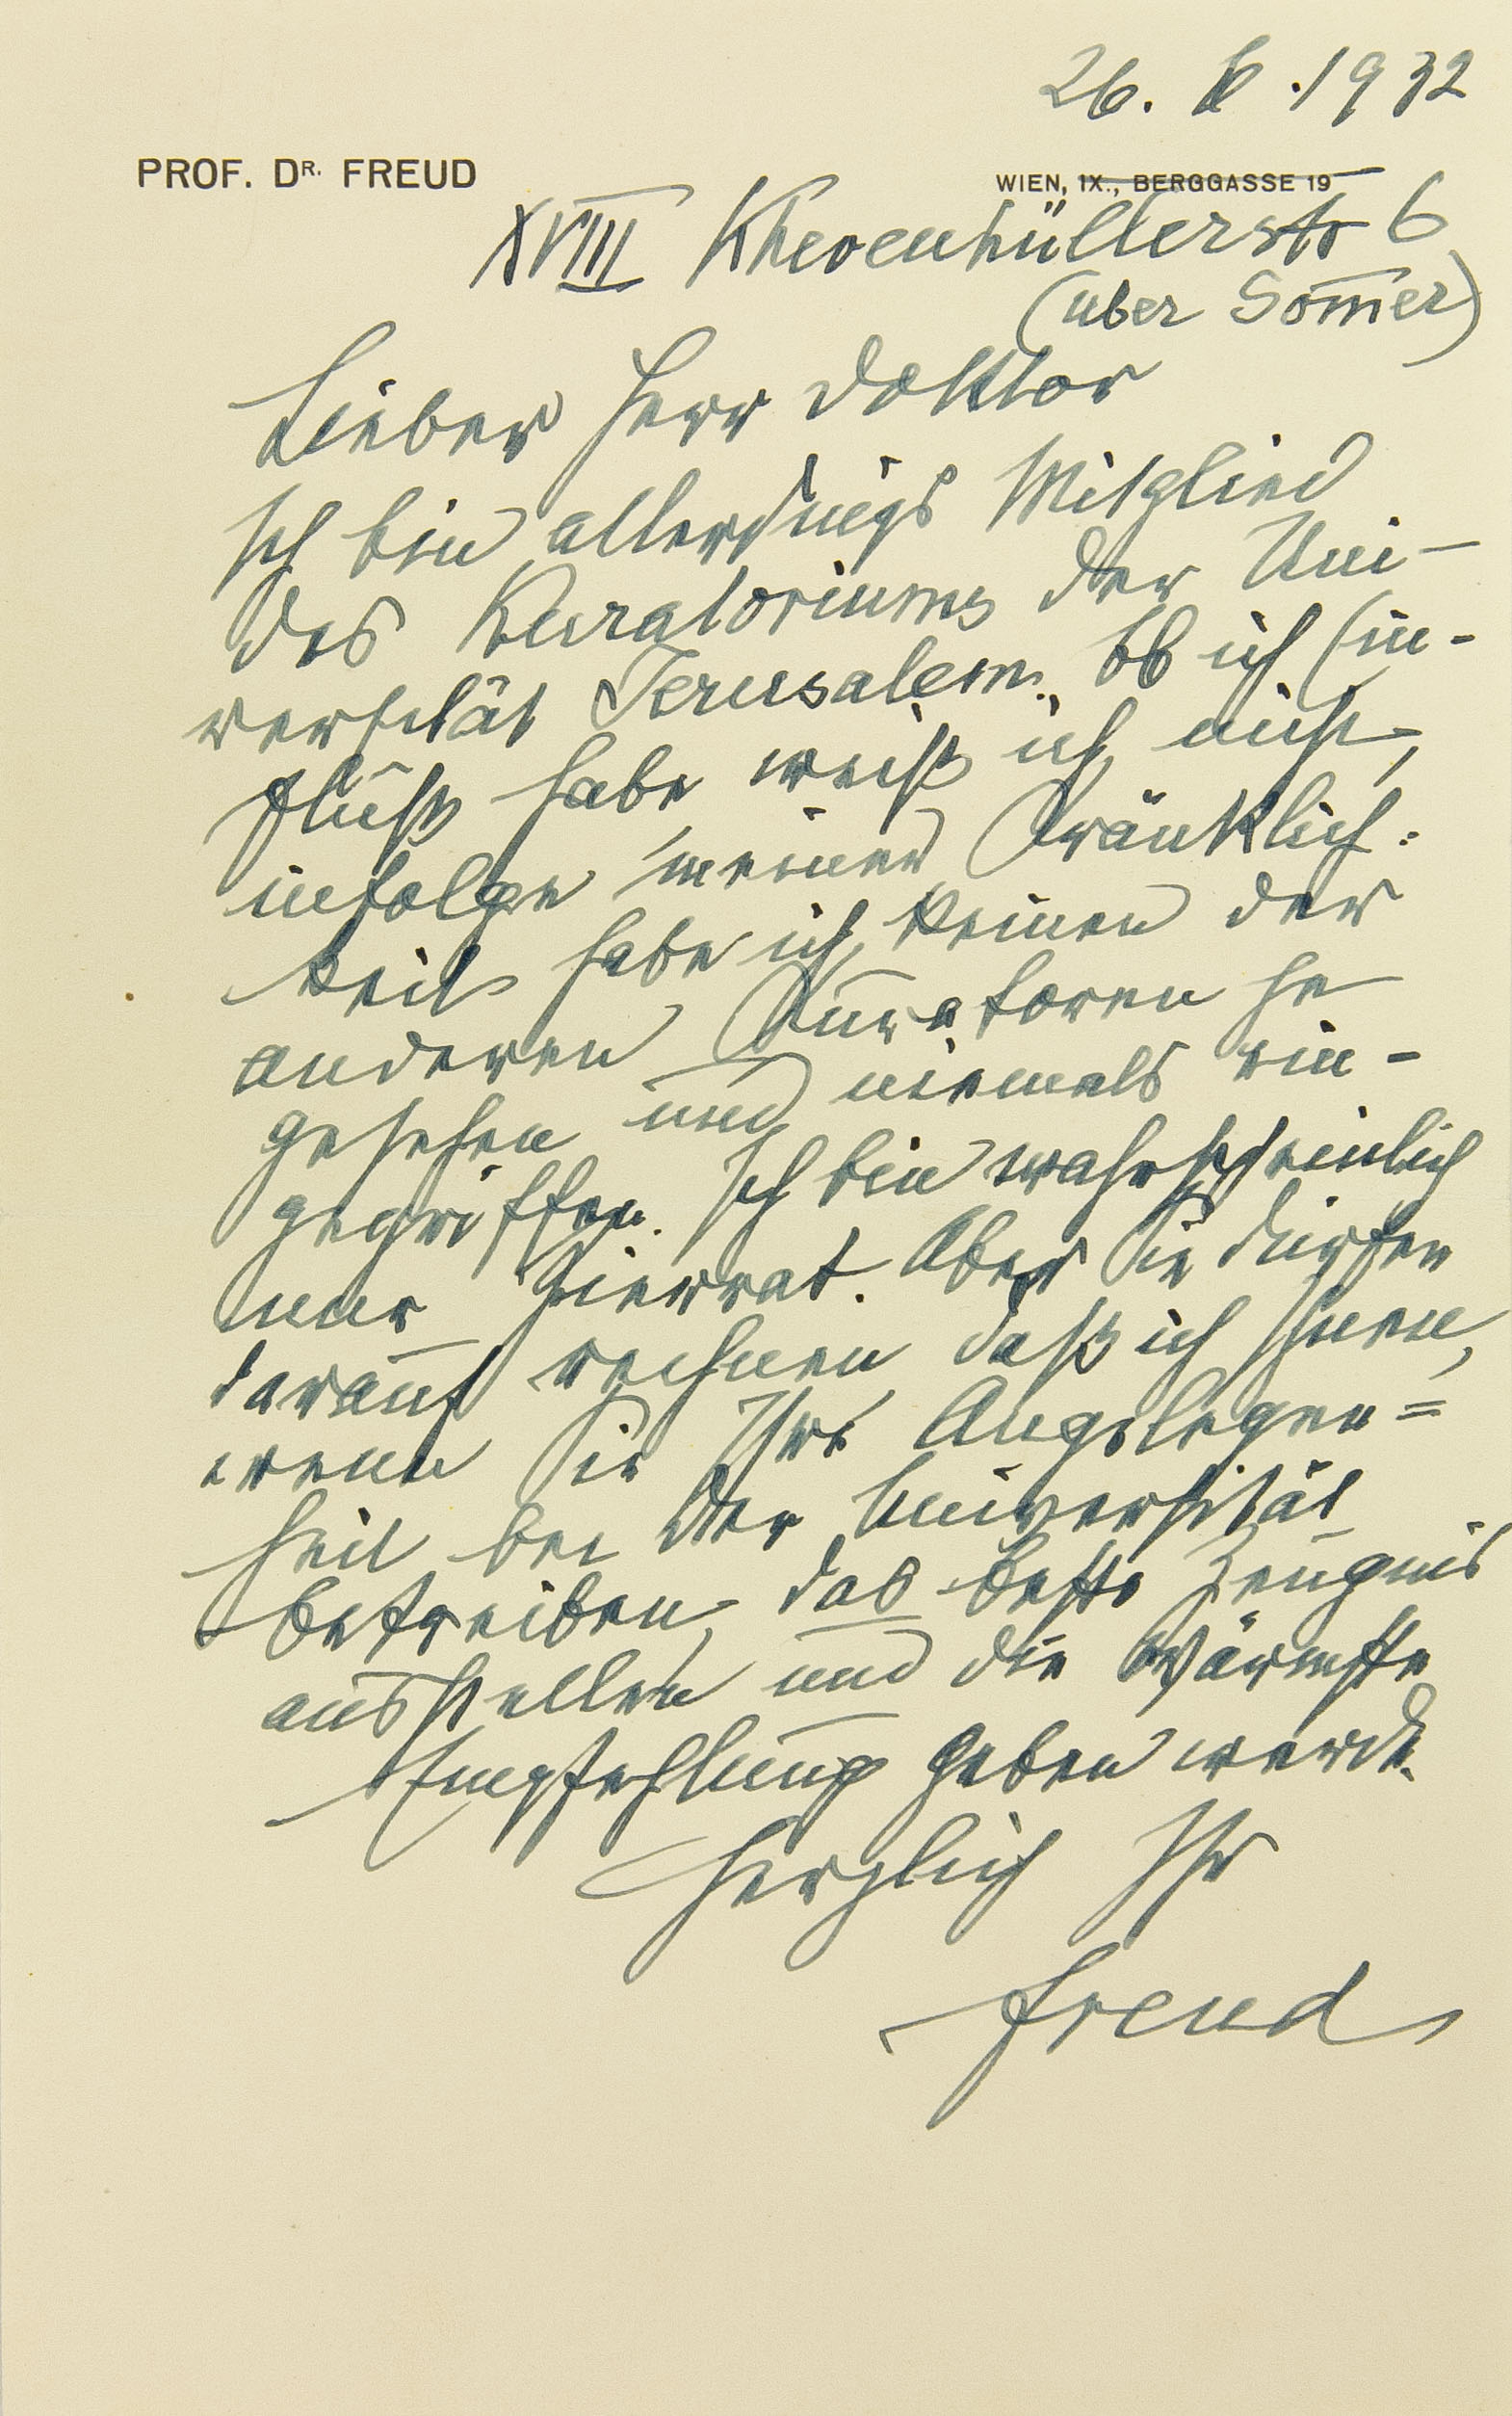 26. V .1932
PROF. DR. FREUD
WIEN, IX., BERGGASSE 19
XVIII Khevenhüllerstr 6
(über Som̄er)
Lieber Herr Doktor
Ich bin allerdings Mitglied
des Kuratoriums der Uni-
versität Jerusalem. Ob ich Ein-
fluß habe weiß ich nicht,
infolge meiner Kränklich-
keit habe ich keinen der
anderen Kuratoren je
gesehen und niemals ein-
gegriffen. Ich bin wahrscheinlich
nur Zierrat. Aber Sie dürfen
darauf rechnen daß ich Ihnen,
wenn Sie Ihre Angelegen=
heit bei der Universität
betreiben, das beste Zeugnis
ausstellen und die wärmste
Empfehlung geben werde.
Herzlich Ihr
Freud